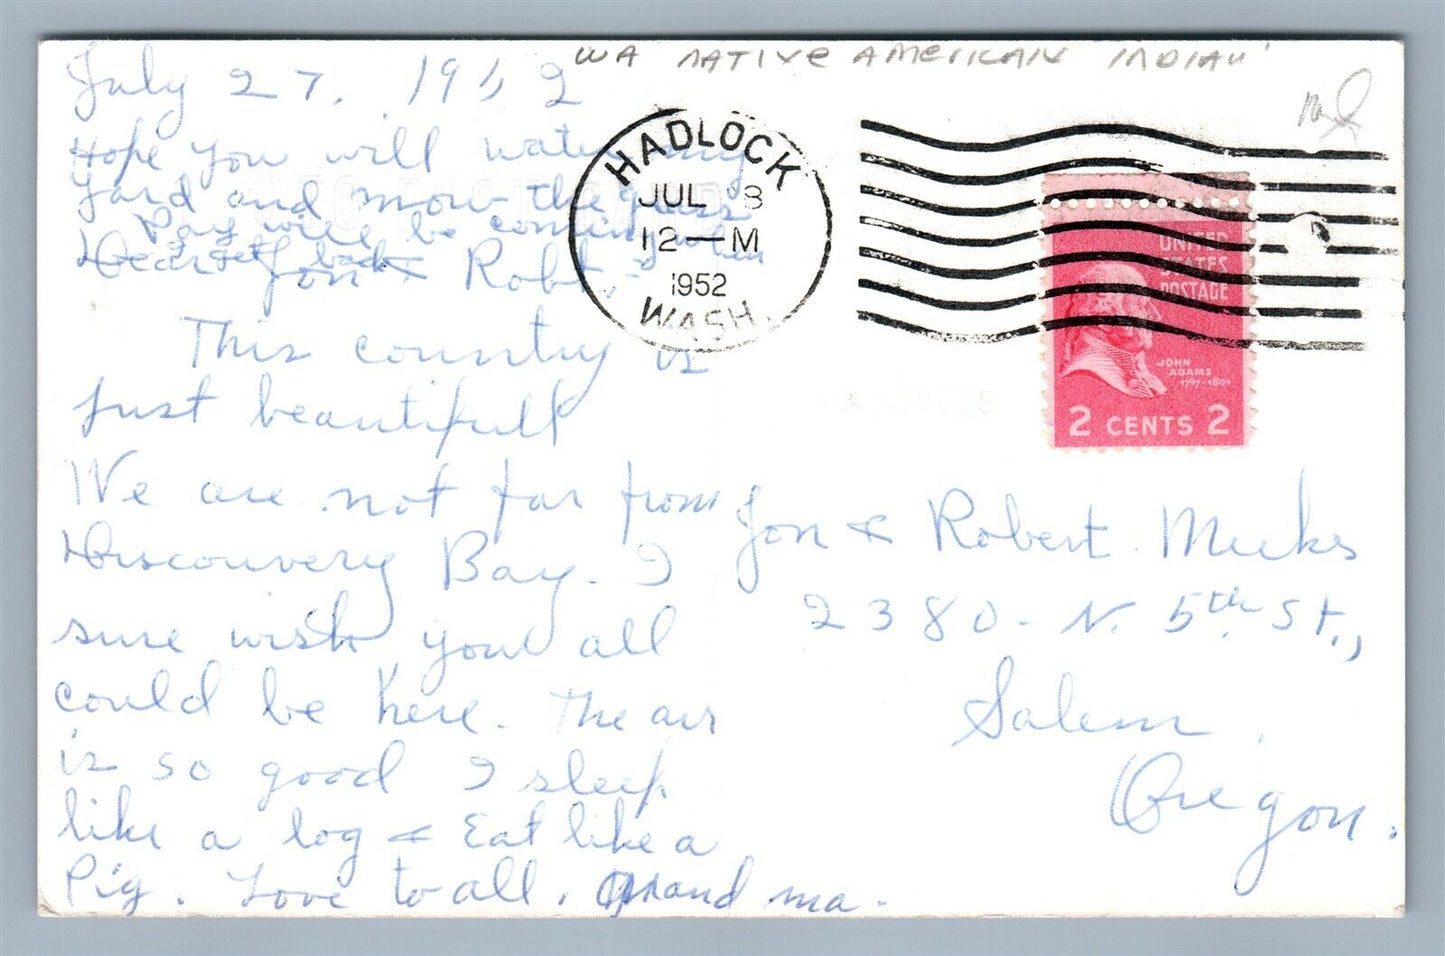 WA NATIVE AMERICAN INDIAN
July 27, 1952
Hope you will water my
yard and mow the grass
Pay will be coming when
I get back
Dear Jon & Robt,
This country is
just beautifull
We are not far from
Discouvery Bay. I
sure wish you all
could be here. The air
is so good I sleep
like a log & Eat like a
Pig. Love to all. Grand ma.
HADLOCK
JUL 8
12—M
1952
WASH.
UNITED
STATES
POSTAGE
JOHN
ADAMS
1797-1801
2 CENTS 2
Jon & Robert Meeks
2380 - N. 5th St.,
Salem,
Oregon.